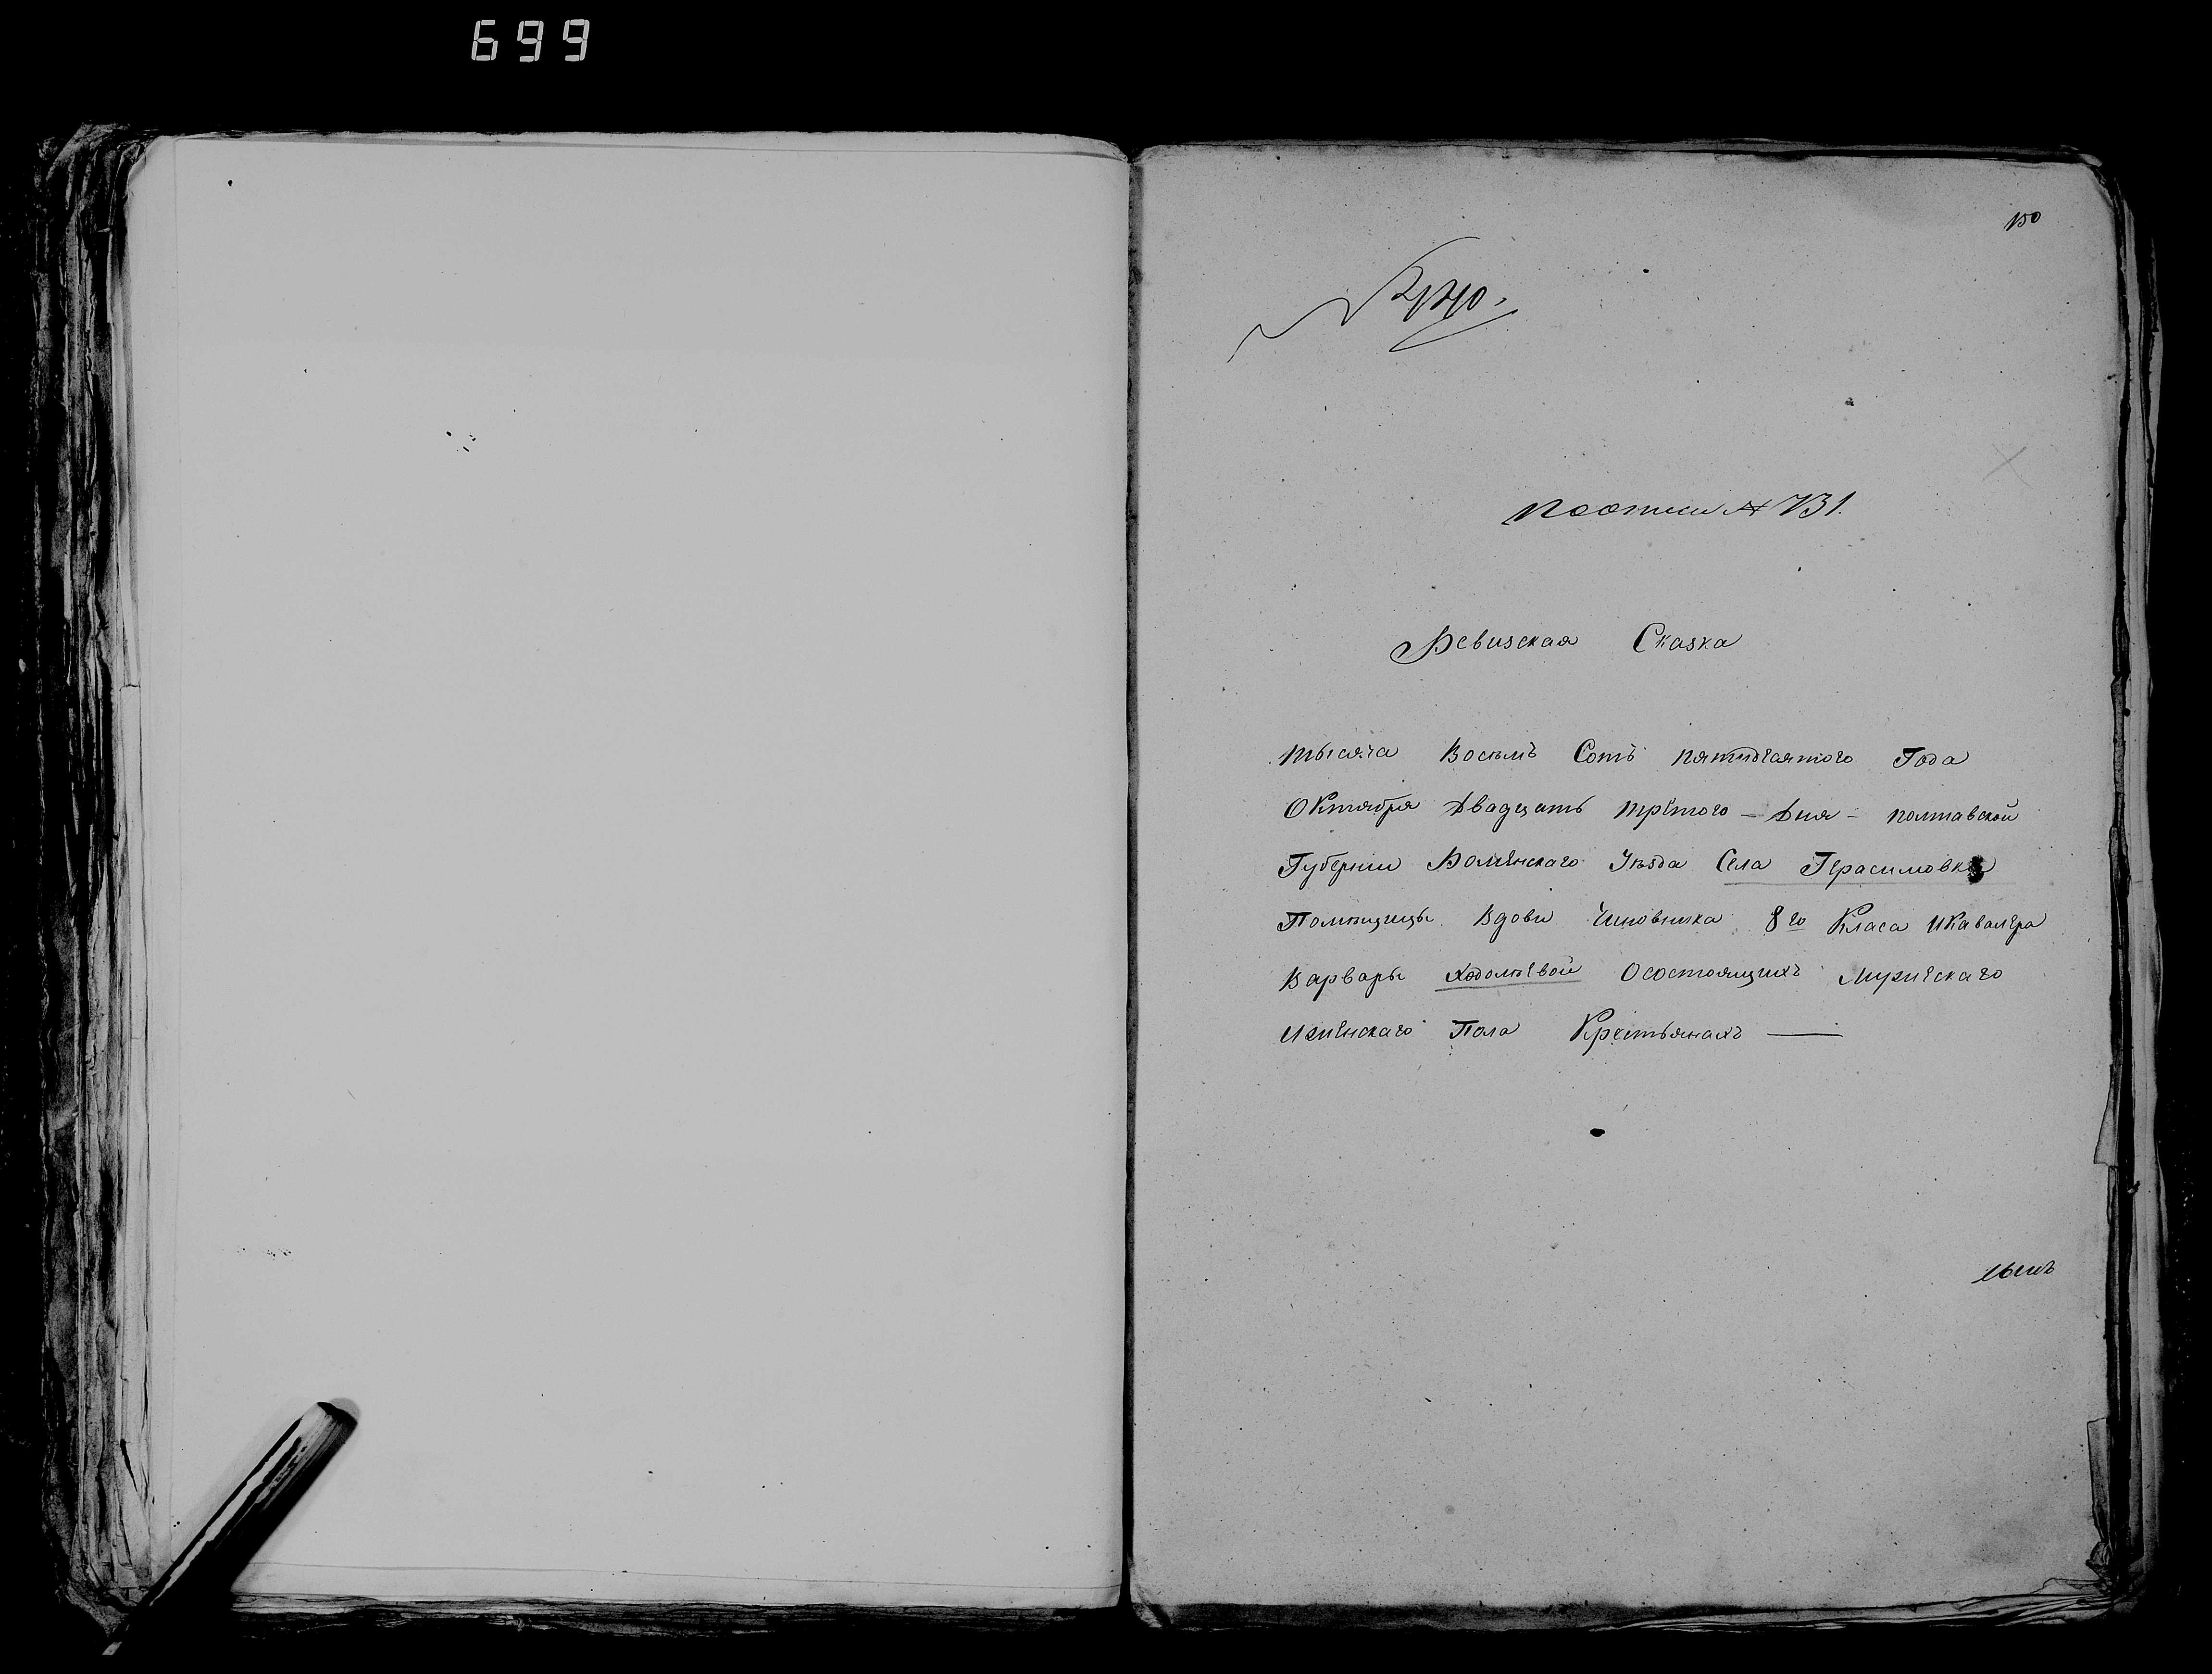 699
150
поописи № 731.
Ревизская Сказка
Тысяча Восемь Сотъ пятидесятого Года
Октября Двадцать третого – Дня – полтавской
Губернии Роменскаго Уезда Села Герасимовки
Помещицы Вдови Чиновника 8го Класа и кавалера
Варвары Ходолеевой Осостоящихъ Мужескаго
Иженскаго Пола Крестьянахъ —